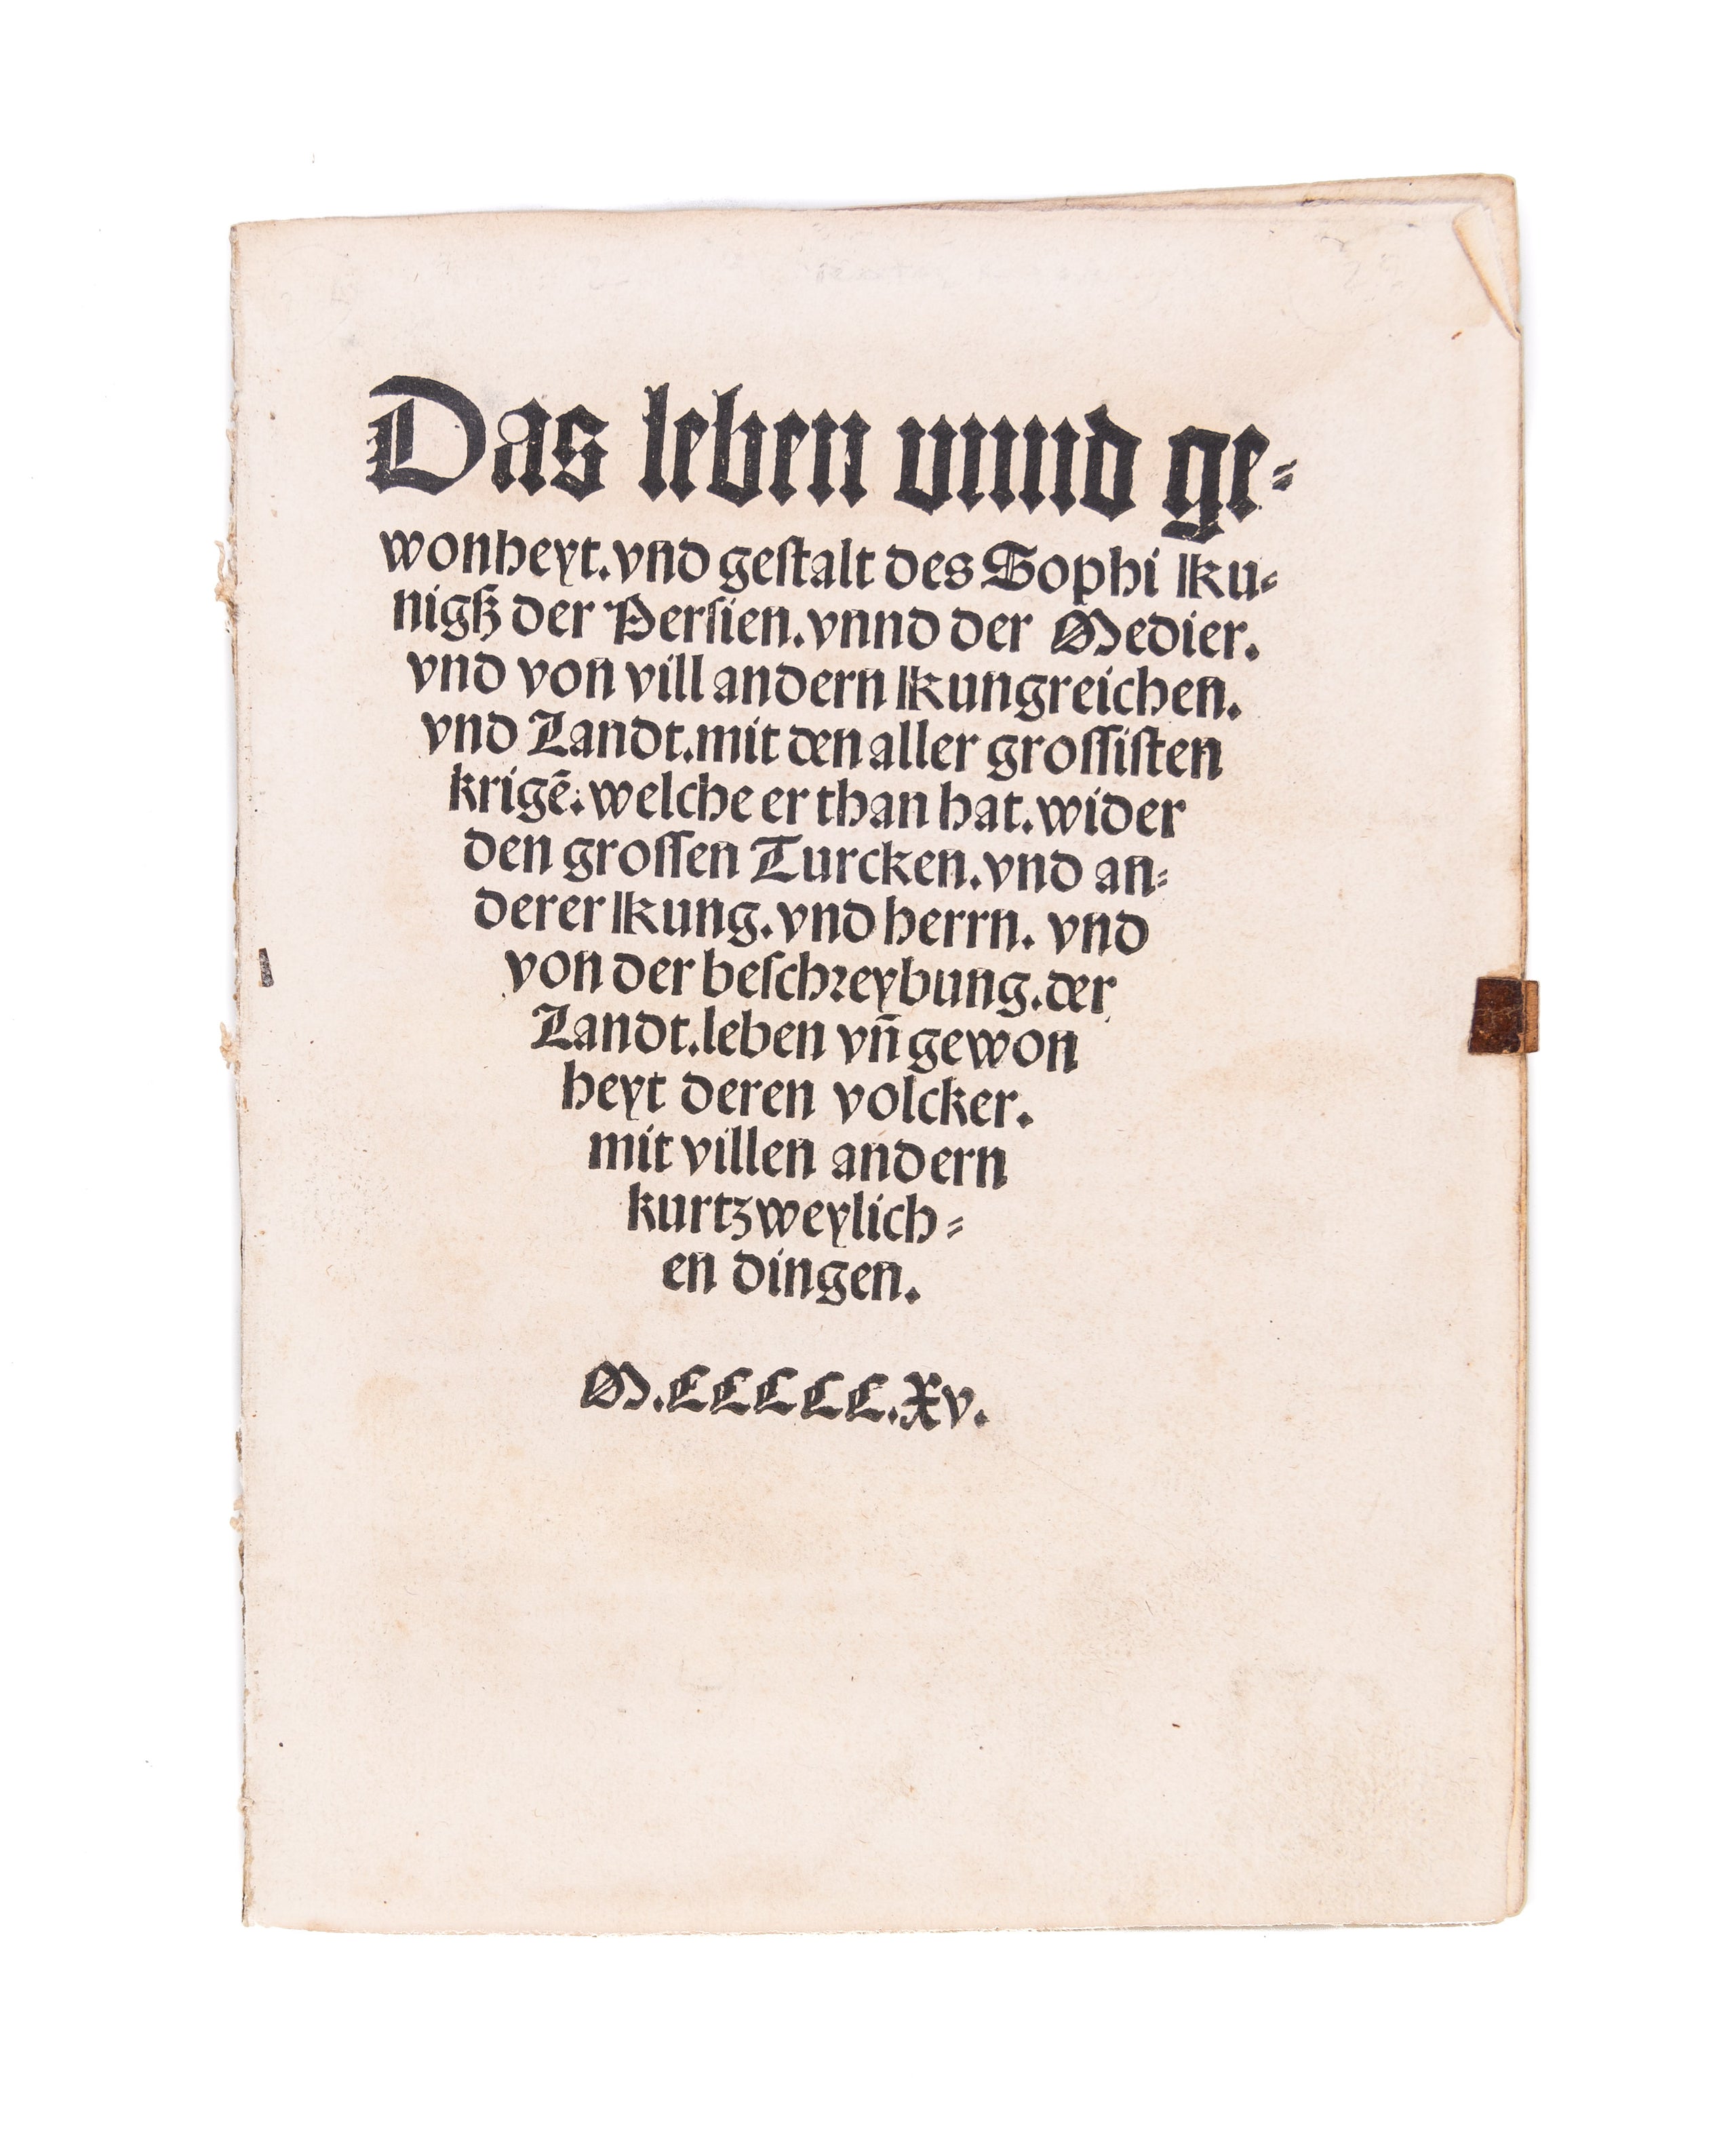 Das leben vnnd ge⸗
wonheyt.vnd gestalt des Sophi Ku⸗
nigß der Persien.vnnd der Medier.
vnd von vill andern Kungreichen.
vnd Landt.mit den aller grossisten
krigē.welche er than hat.wider
den grossen Turcken.vnd an⸗
derer Kung.vnd herrn. vnd
von der beschreybung.der
Landt.leben vn̄ gewon
heyt deren volcker.
mit villen andern
kurtzweylich⸗
en dingen.
M.CCCCC.Xv.